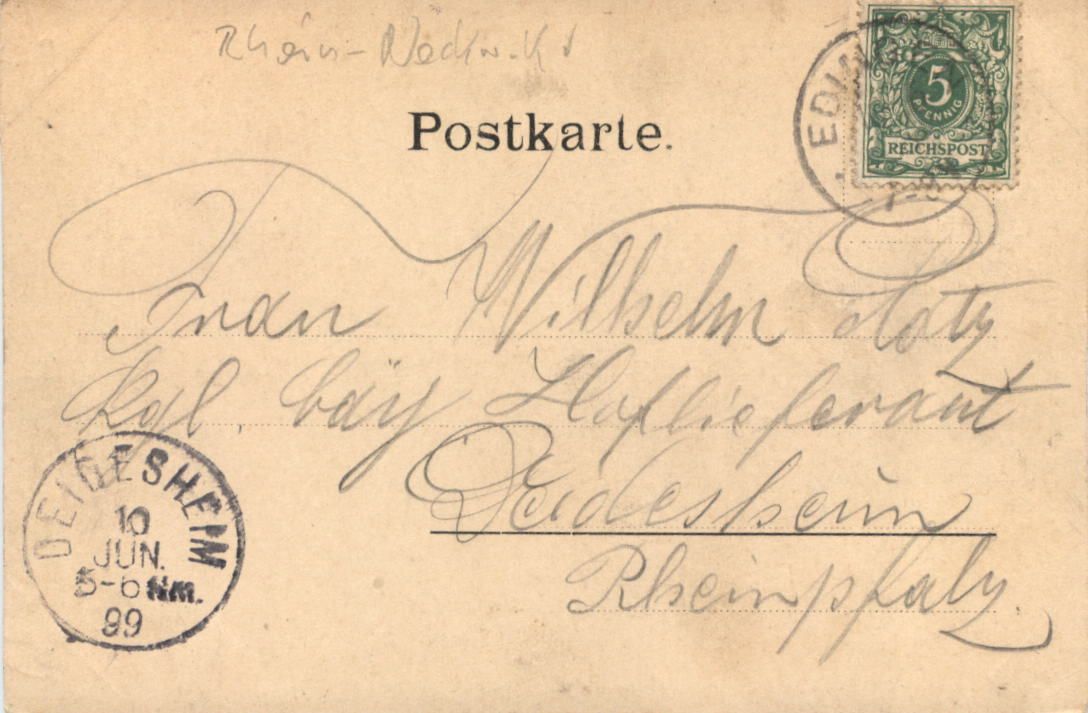 Rhein-Neckar-K
Postkarte.
5
PFENNIG
REICHSPOST
EDINGEN
Frau Wilhelm
kgl. bay Hoflieferant
Deidesheim
Rheinpfalz.
DEIDESHEIM
10
JUN.
5-6 Nm.
99